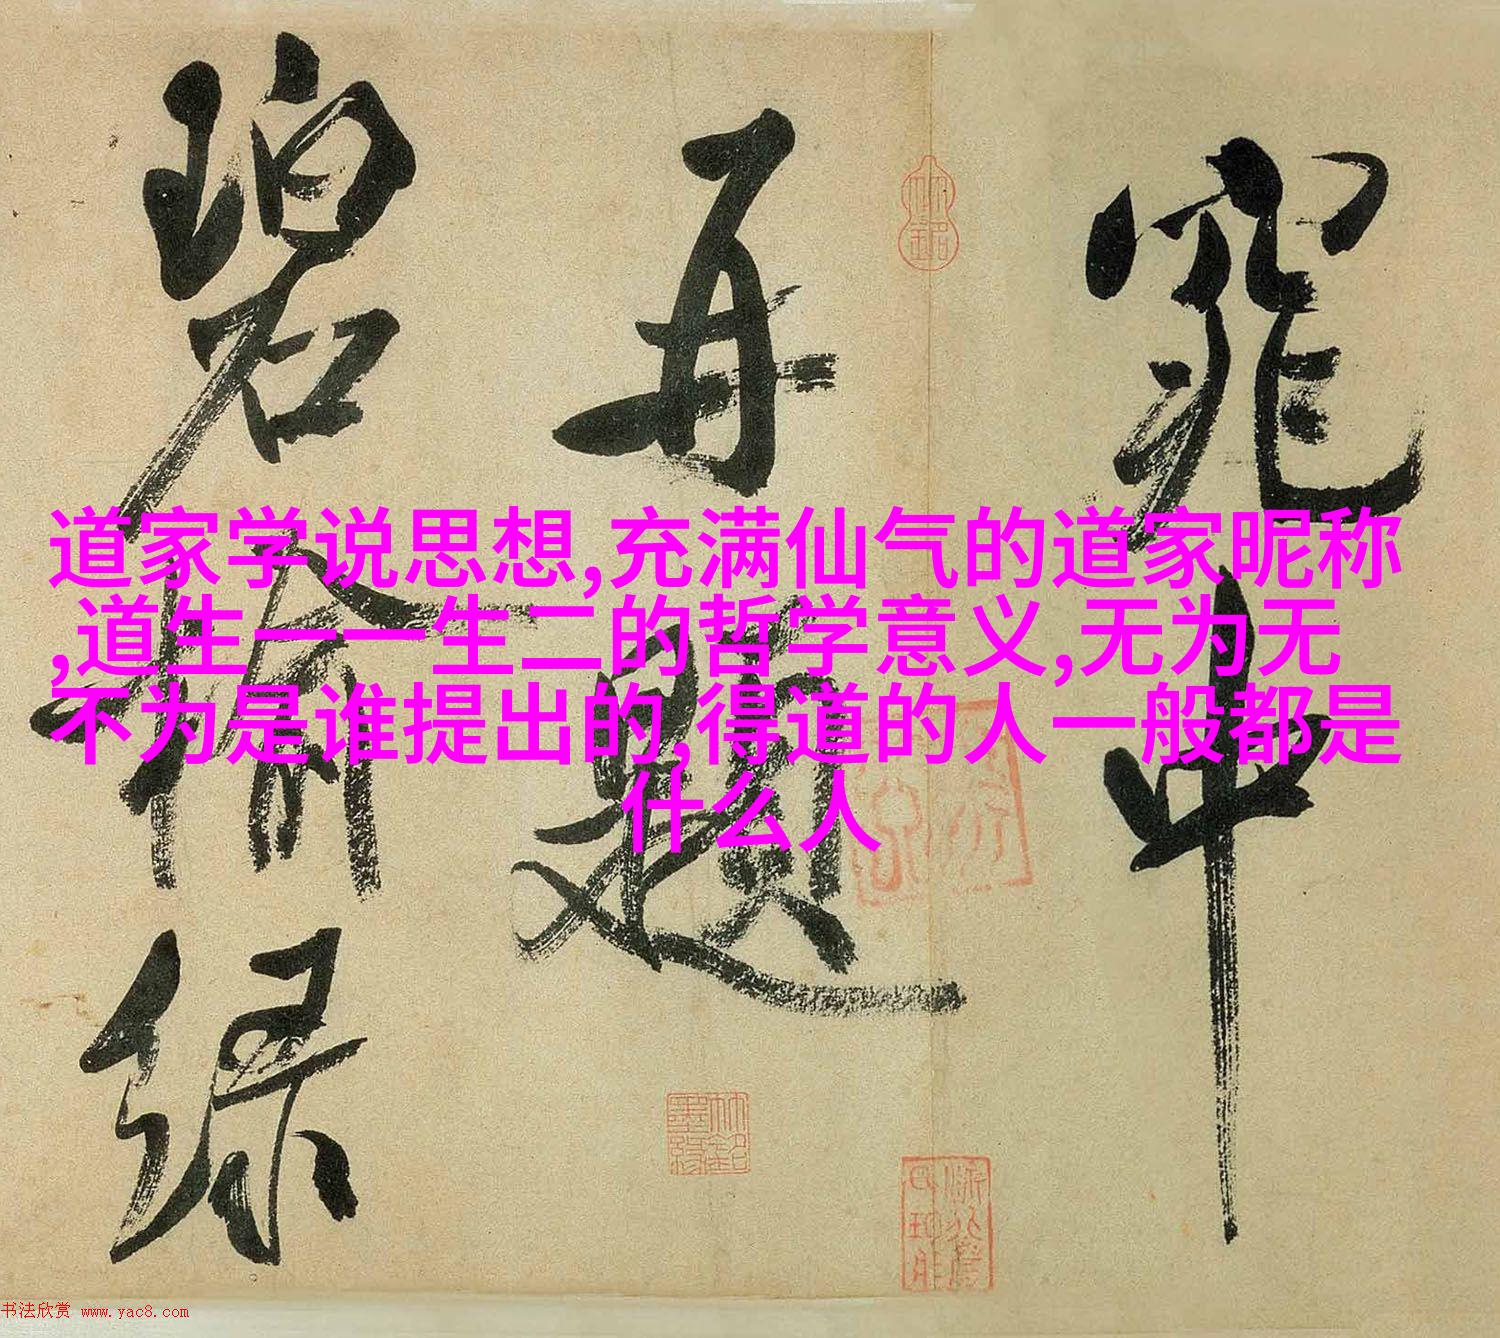 道家学说思想,充满仙气的道家昵称
,道生一一生二的哲学意义,无为无
不为是谁提出的,得道的人一般都是
什么人
中
再题
碧榆绿
书法欣赏 www.yac8.com